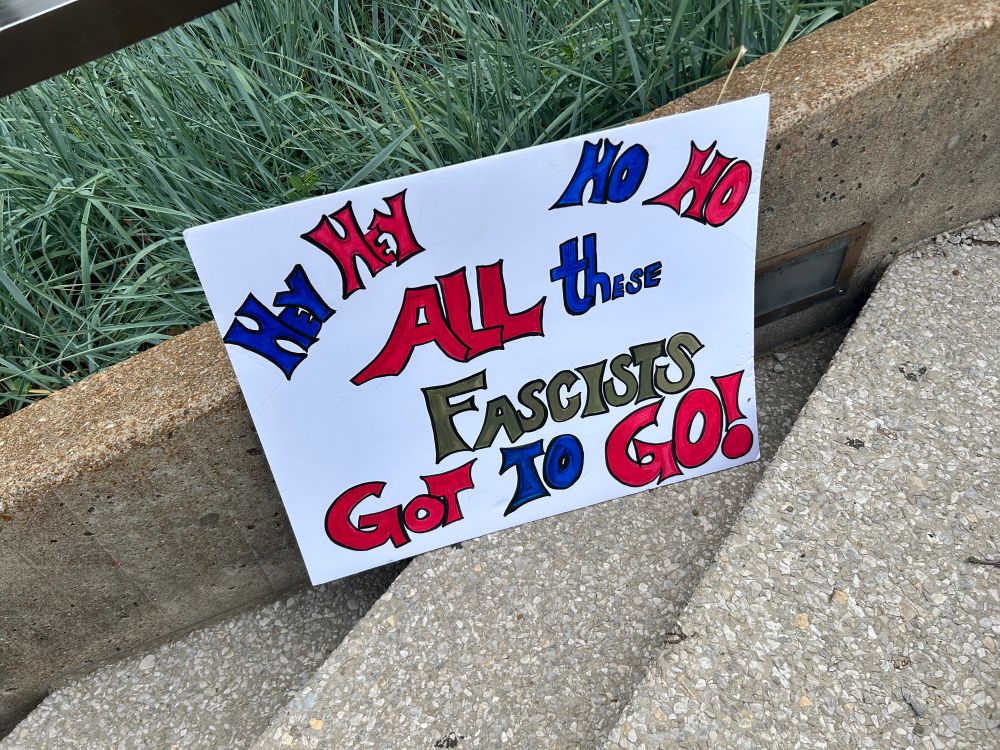 HEY HEY HO HO
ALL thESE
FASCISTS
GOT TO GO!